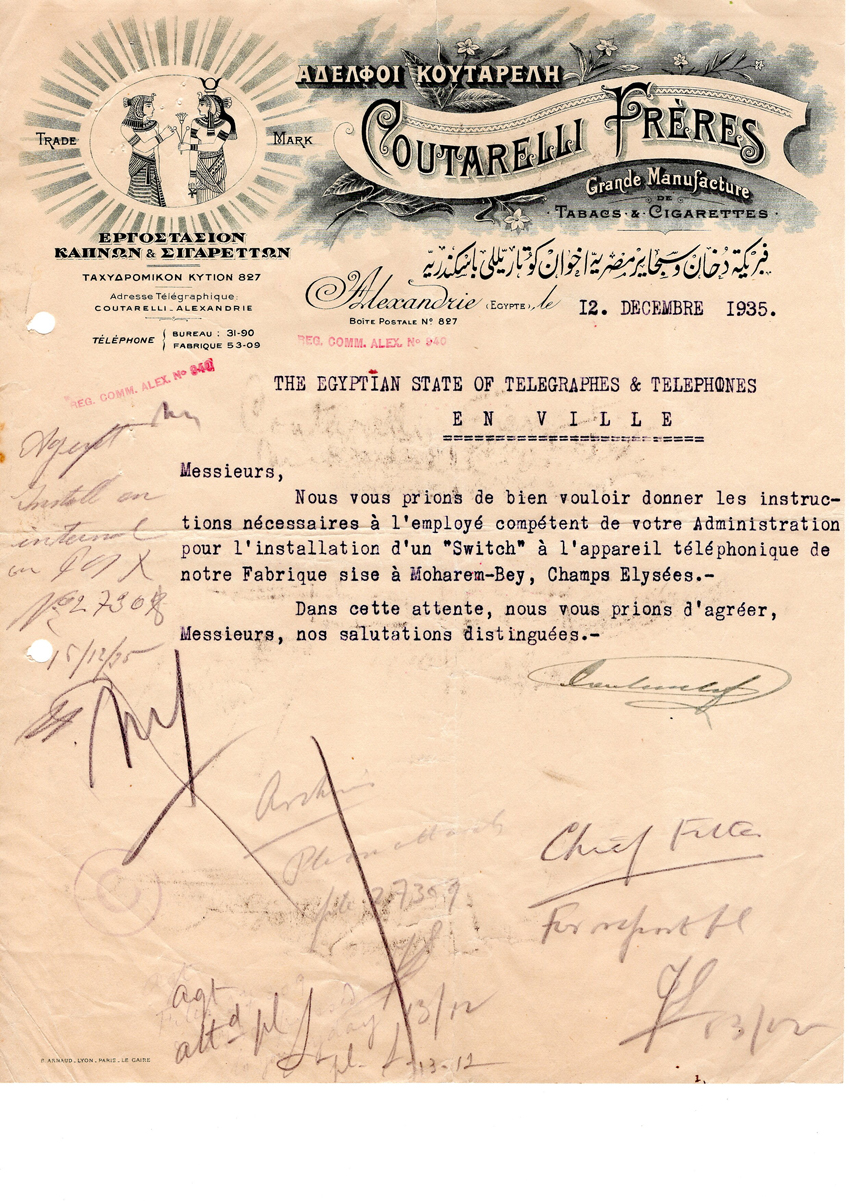 ΑΔΕΛΦΟΙ ΚΟΥΤΑΡΕΛΗ
COUTARELLI FRÈRES
Grande Manufacture
DE
TABACS & CIGARETTES
TRADE MARK
ΕΡΓΟΣΤΑΣΙΟΝ
ΚΑΠΝΩΝ & ΣΙΓΑΡΕΤΤΩΝ
ΤΑΧΥΔΡΟΜΙΚΟΝ ΚΥΤΙΟΝ 827
Adresse Télégraphique:
COUTARELLI_ALEXANDRIE
TÉLÉPHONE
BUREAU : 31-90
FABRIQUE 53-09
فبريكة دخان وسجاير مصرية اخوان كوتاريللى باسكندرية
Alexandrie (EGYPTE), le 12. DECEMBRE 1935.
BOÎTE POSTALE Nº 827
REG. COMM. ALEX. Nº 940
REG. COMM. ALEX. Nº 940
THE EGYPTIAN STATE OF TELEGRAPHES & TELEPHONES
EN VILLE
Messieurs,
Nous vous prions de bien vouloir donner les instruc-
tions nécessaires à l'employé compétent de votre Administration
pour l'installation d'un "Switch" à l'appareil téléphonique de
notre Fabrique sise à Moharem-Bey, Champs Elysées.-
Dans cette attente, nous vous prions d'agréer,
Messieurs, nos salutations distinguées.-
Agent
Install an
internal
15/12/35
Chief Fitter
For report pl
13/12
Please attach
file 27309
agt
attd pl
13/12
13-12
P. ARNAUD_LYON_PARIS_LE CAIRE